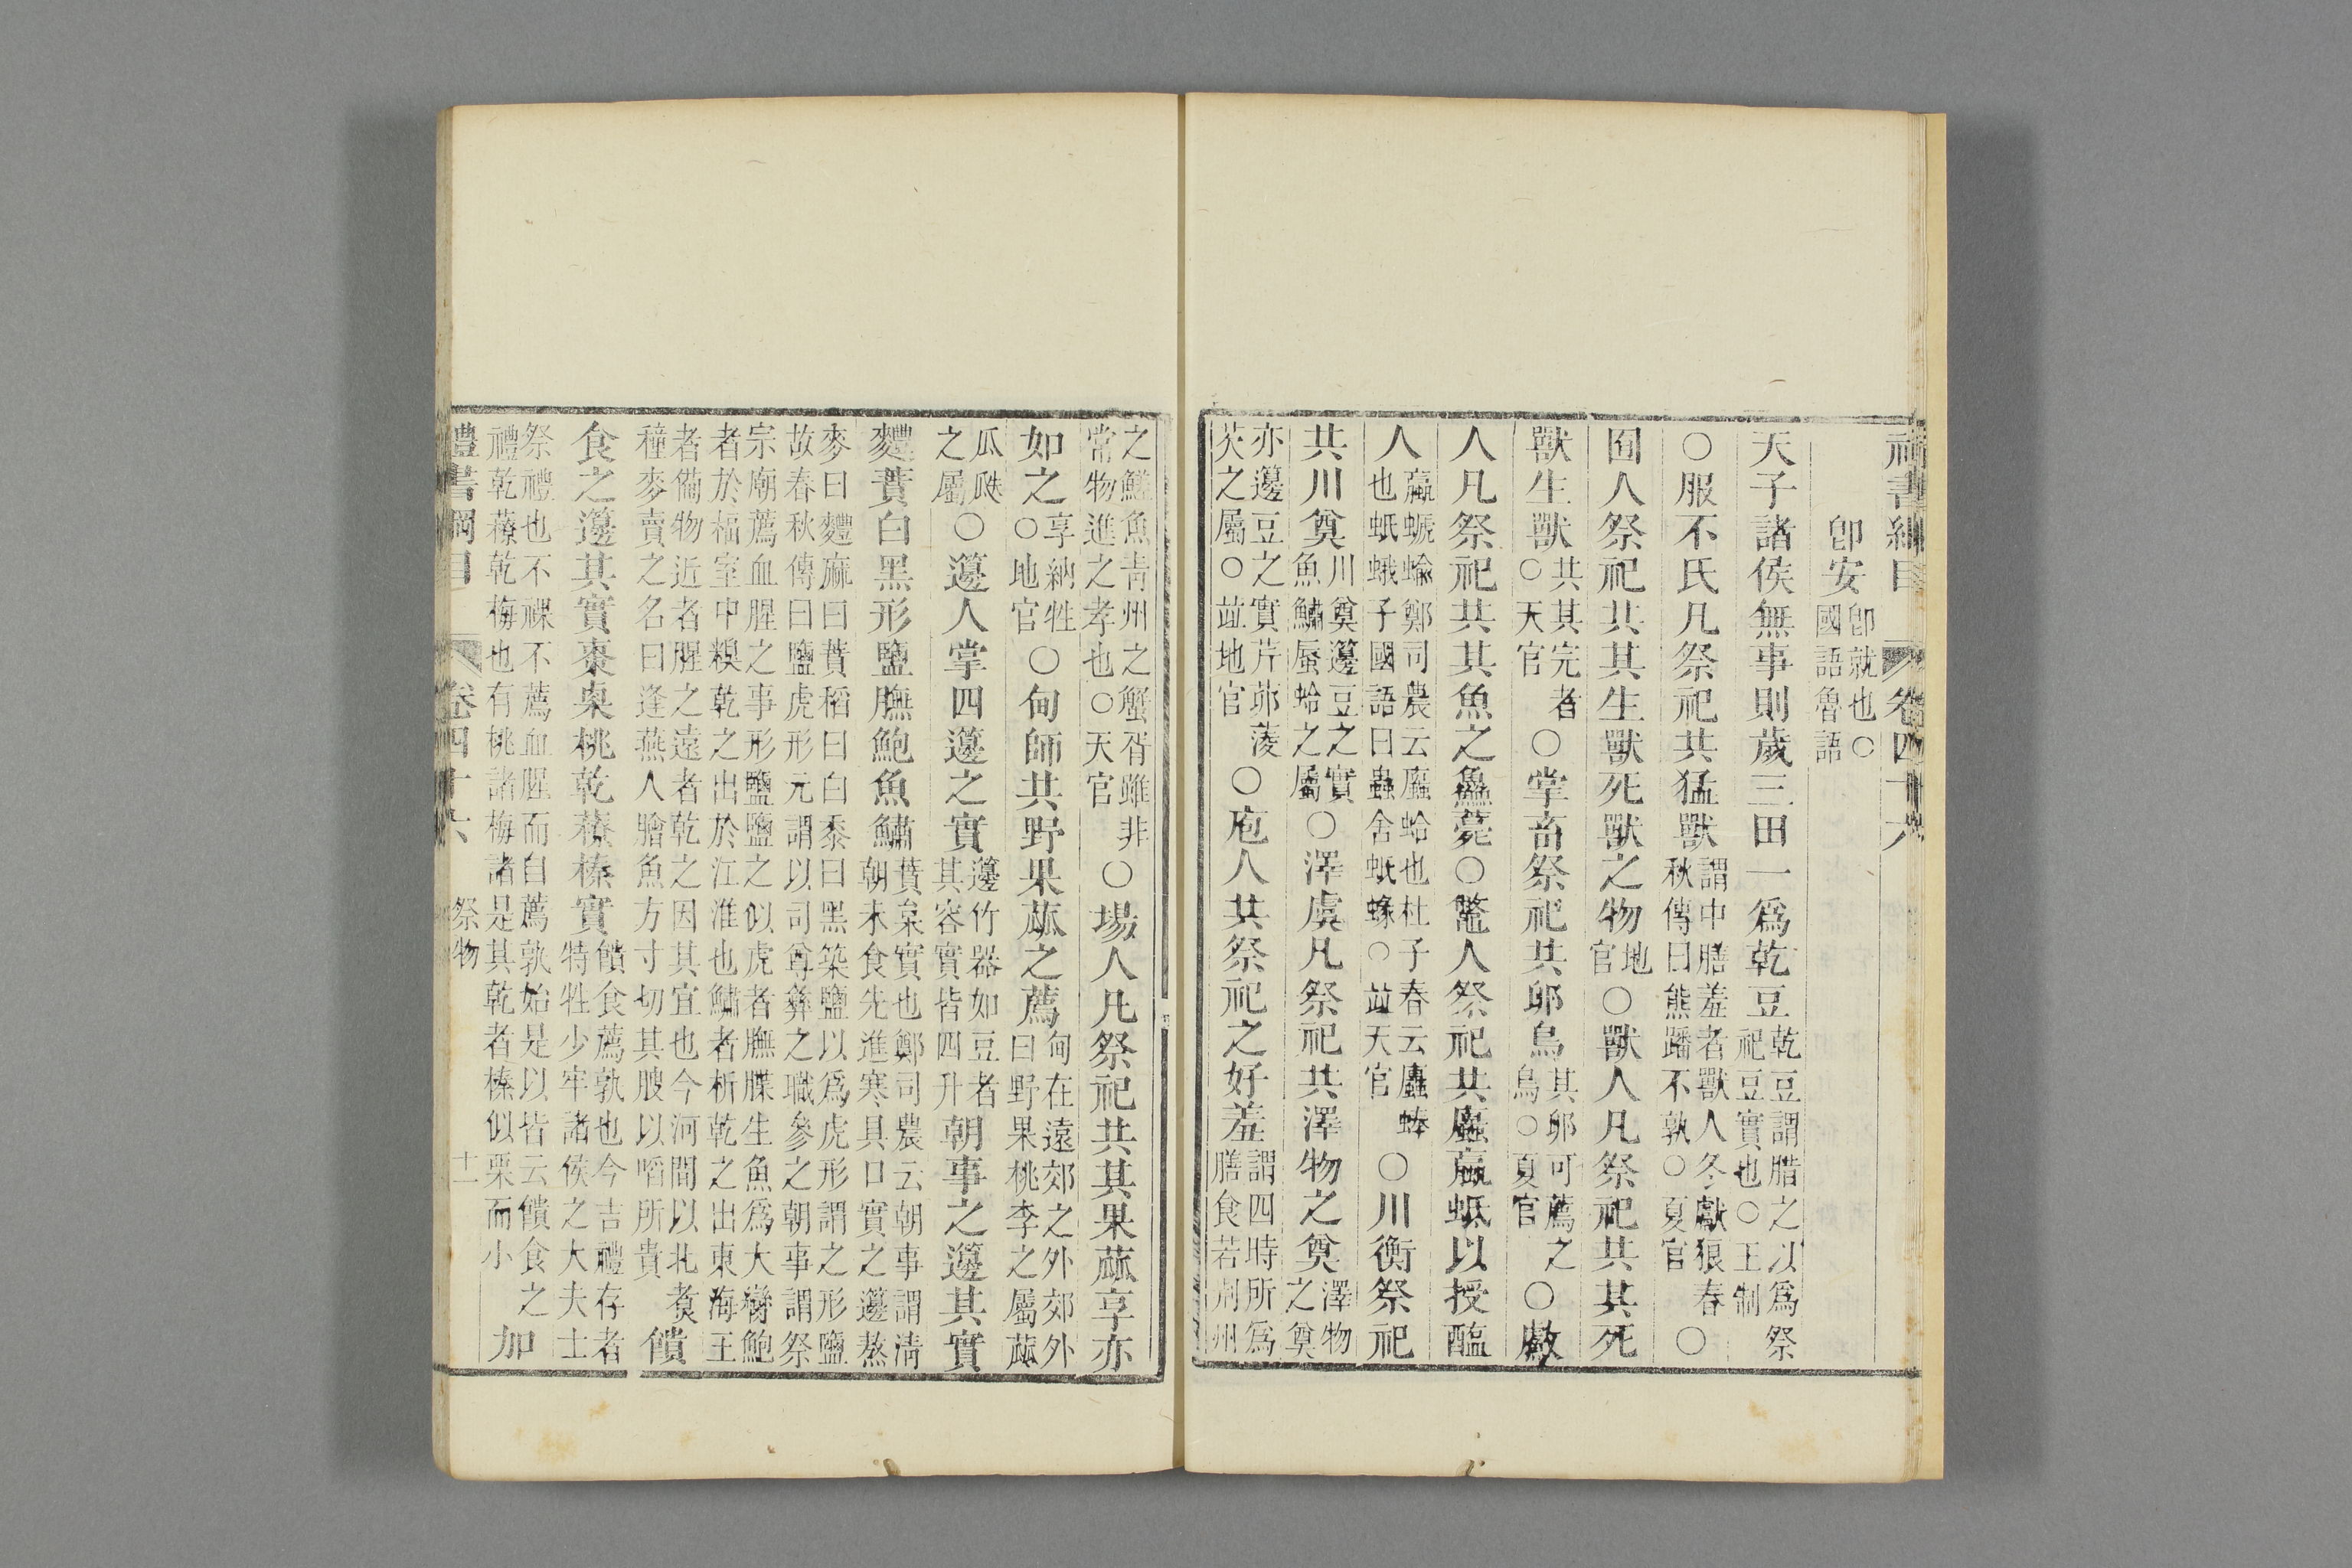 禮書綱目 卷四十六
卽安卽就也○國語魯語
天子諸侯無事則歲三田一爲乾豆乾豆謂腊之以爲祭祀豆實也○王制
○服不氏凡祭祀共猛獸謂中膳羞者獸人冬獻狼春秋傳曰熊蹯不孰○夏官○
囿人祭祀共其生獸死獸之物地官○獸人凡祭祀共其死
獸生獸共其完者○天官○掌畜祭祀共卵鳥其卵可薦之鳥○夏官○䱷
人凡祭祀共其魚之鱻薧○鼈人祭祀共蠯蠃蚳以授醢
人蠃螔蝓鄭司農云蠯蛤也杜子春云蠯蜯也蚳蛾子國語曰蟲舍蚳蝝○竝天官○川衡祭祀
共川奠川奠籩豆之實魚鱐蜃蛤之屬○澤虞凡祭祀共澤物之奠澤物之奠
亦籩豆之實芹茆蔆芡之屬○竝地官○庖人共祭祀之好羞謂四時所爲膳食若荆州
之䱹魚靑州之蟹胥雖非常物進之孝也○天官○場人凡祭祀共其果蓏享亦
如之享納牲○地官○甸師共野果蓏之薦甸在遠郊之外郊外曰野果桃李之屬蓏
瓜瓞之屬○籩人掌四籩之實籩竹器如豆者其容實皆四升朝事之籩其實
麷蕡白黑形鹽膴鮑魚鱐蕡枲實也鄭司農云朝事謂淸朝未食先進寒具口實之籩熬
麥曰麷麻曰蕡稻曰白黍曰黑築鹽以爲虎形謂之形鹽故春秋傳曰鹽虎形元謂以司尊彝之職參之朝事謂祭
宗廟薦血腥之事形鹽鹽之似虎者膴䐑生魚爲大臠鮑者於楅室中糗乾之出於江淮也鱐者析乾之出東海王
者備物近者腥之遠者乾之因其宜也今河間以北煑穜麥賣之名曰逢燕人膾魚方寸切其腴以㗖所貴饋
食之籩其實棗㮚桃乾䕩榛實饋食薦孰也今吉禮存者特牲少牢諸侯之大夫士
祭禮也不祼不薦血腥而自薦孰始是以皆云饋食之禮乾䕩乾梅也有桃諸梅諸是其乾者榛似栗而小加
禮書綱目 卷四十六 祭物 十一